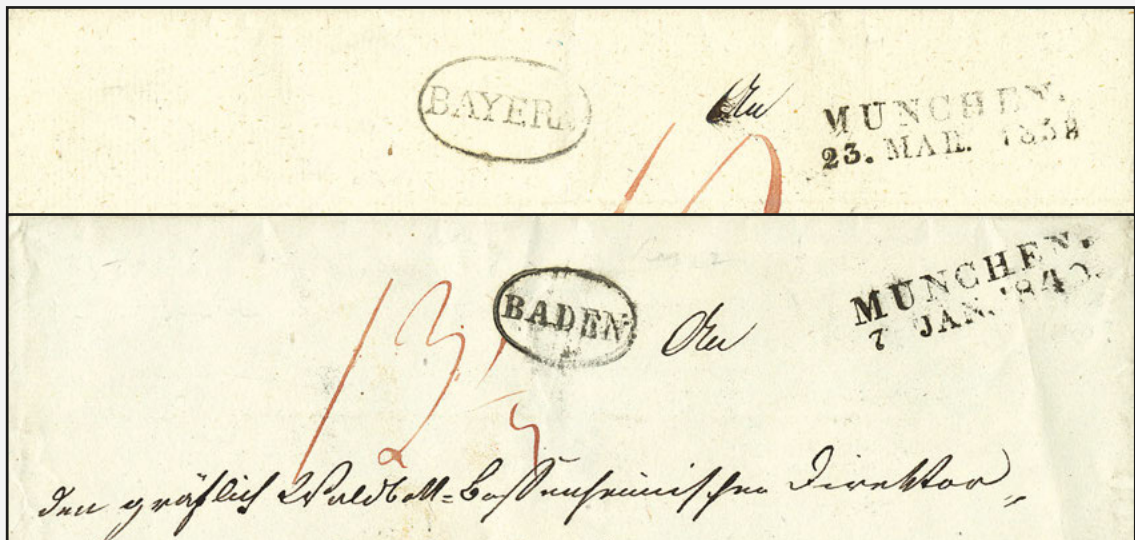 BAYERN
An
MÜNCHEN.
23. MAR. 1838
BADEN
An
MÜNCHEN.
7 JAN. 1840.
den gräflich Waldbott=Bassenheimischen Direktor